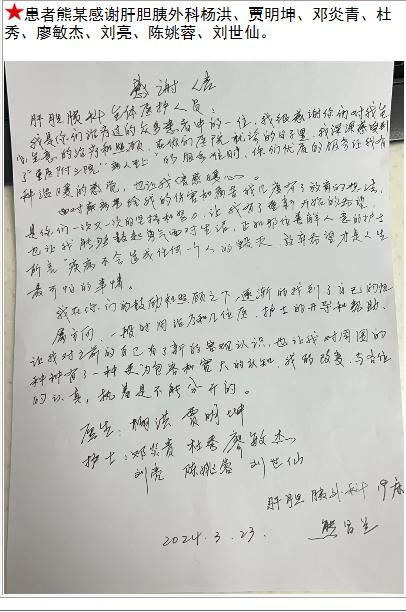 ★患者熊某感谢肝胆胰外科杨洪、贾明坤、邓炎青、杜
秀、廖敏杰、刘亮、陈姚蓉、刘世仙。
感谢信
肝胆胰科全体医护人员：
我是你们治疗过的众多患者中的一位，我很感谢你们对我在
生意的治疗和照顾，在你们医院就诊的日子里，我深深感受到
了重医附三院“病人至上”的服务准则，你们优质的服务让我有
种温暖的感觉，也让我倍感暖心。
面对疾病带给我的伤害和痛苦我几度有了放弃的想法，
是你们一次又一次的坚持和努力，让我有了重新开始的希望，
也让我能够鼓起勇气面对生活，正如那位善解人意的护士
所言“疾病不会造成任何一个人的毁灭，放弃希望才是人生
最可怕的事情。
我在你们的鼓励和照顾之下，逐渐的找到了自己的
方向，一段时间治疗和几位医、护士的开导和帮助，
让我对之前的自己有了新的客观认识，也让我对周围的
种种有了一种更为包容和宽大的认知，我的改变，与各位
的认真，执着是不能分开的。
医生：杨洪 贾明坤
护士：邓炎青 杜秀 廖敏杰
刘亮 陈姚蓉 刘世仙
肝胆胰外科 床
熊
2024.3.23.